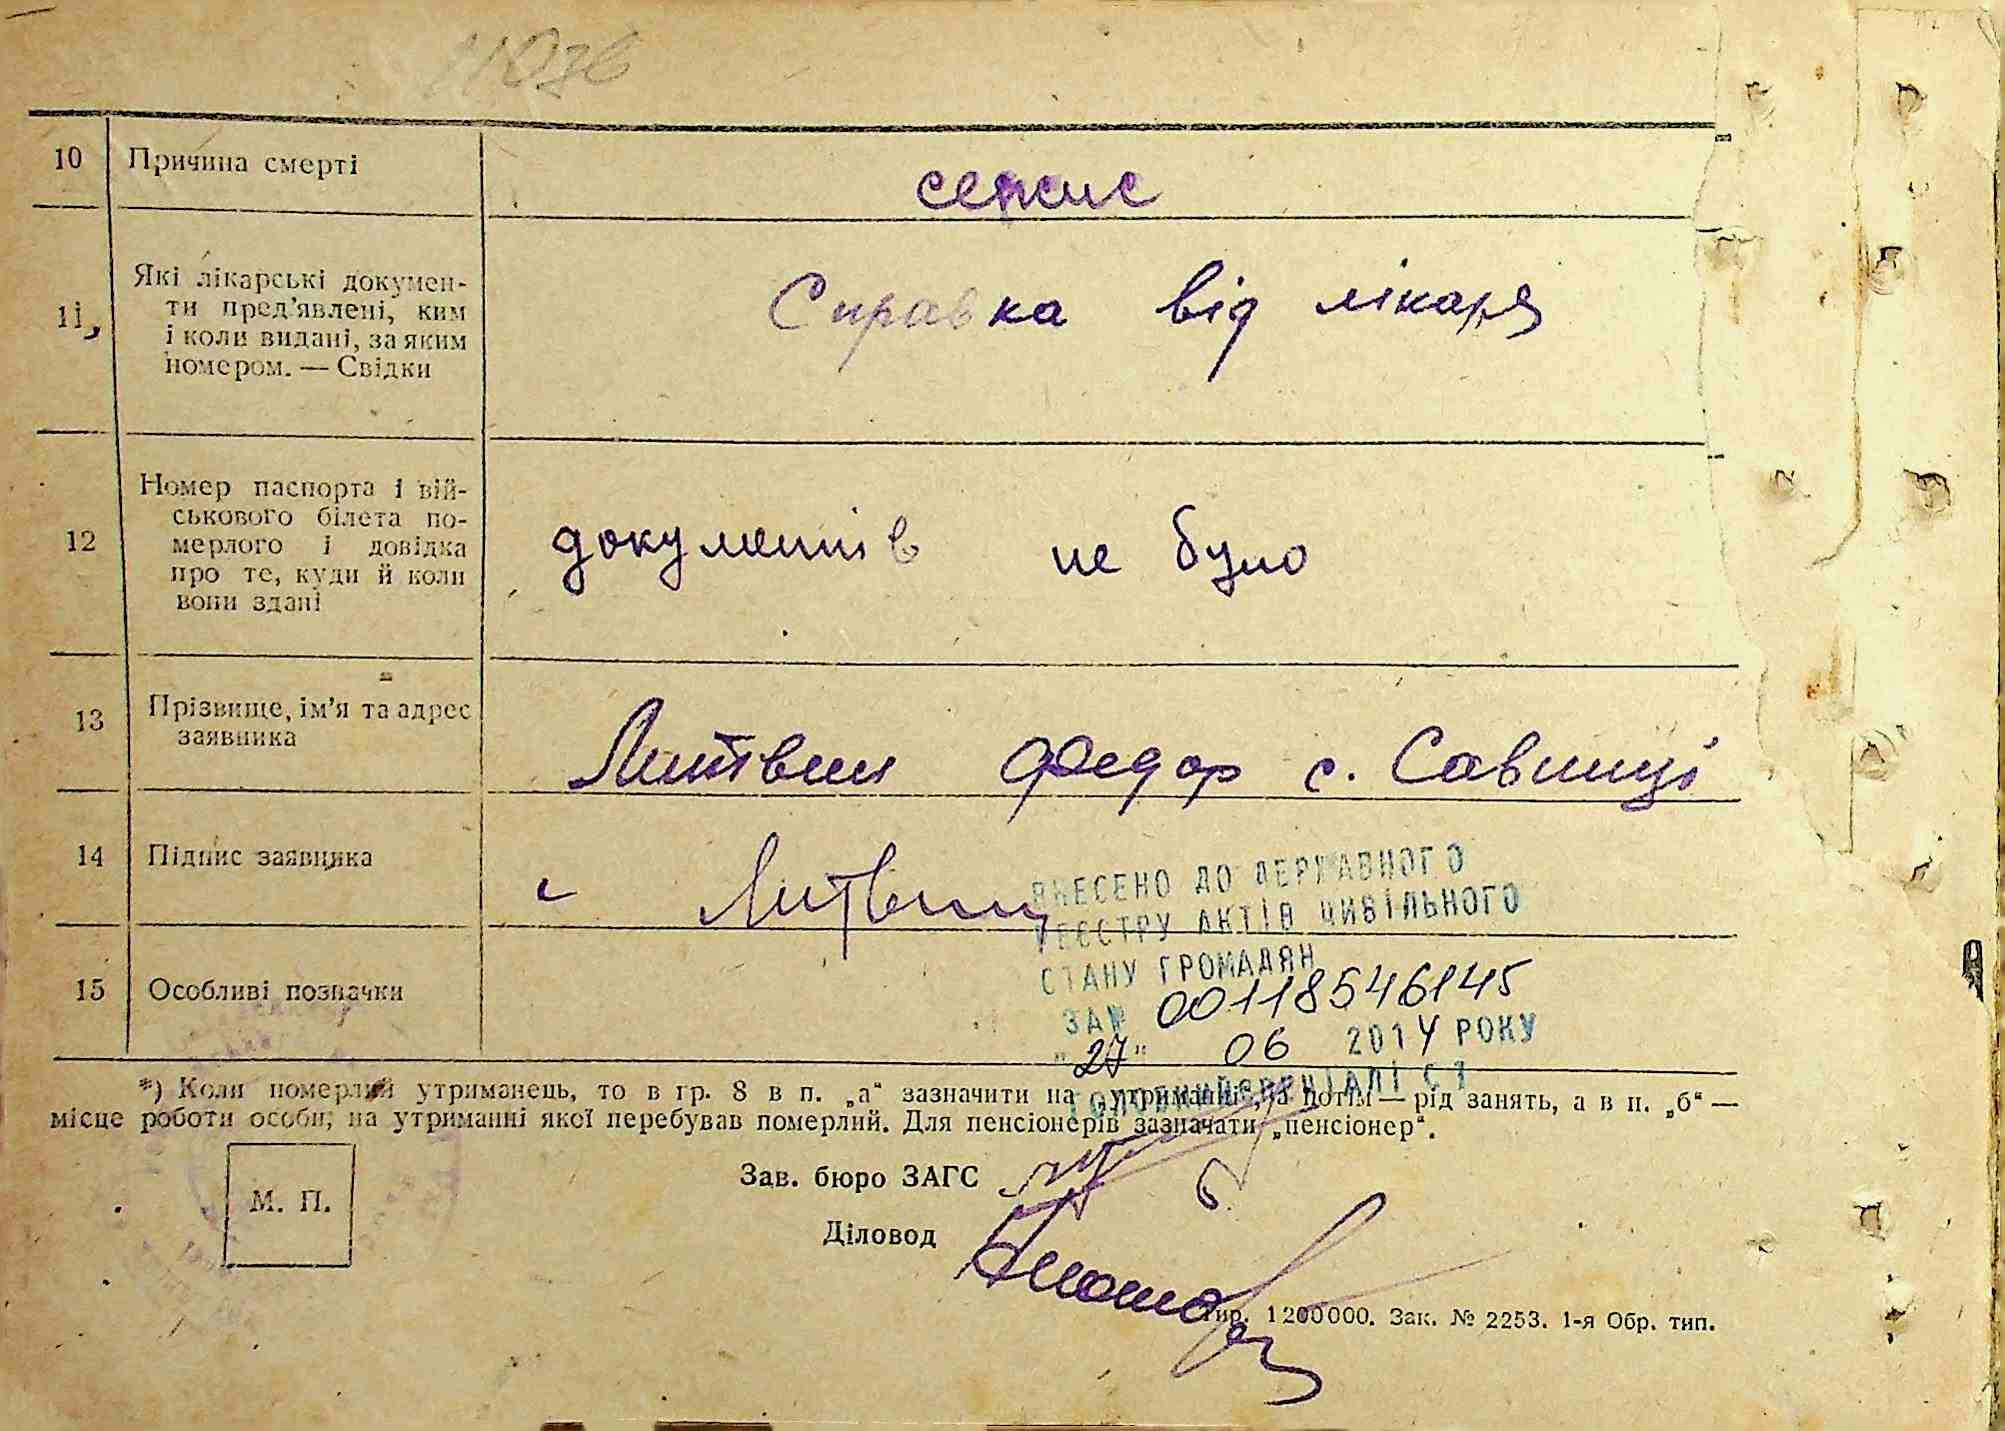 10 Причина смерті
сепсис
11 Які лікарські докумен-
ти пред’явлені, ким
і коли видані, за яким
номером. — Свідки
Справка від лікаря
12 Номер паспорта і вій-
ськового білета по-
мерлого і довідка
про те, куди й коли
вони здані
документів не було
13 Прізвище, ім’я та адрес
заявника
Литвин Федор с. Савинці
14 Підпис заявника
Литвин
ВНЕСЕНО ДО ДЕРЖАВНОГО
РЕЄСТРУ АКТІВ ЦИВІЛЬНОГО
СТАНУ ГРОМАДЯН
ЗА № 00118546145
"27" 06 2014 РОКУ
ГОЛОВНИЙ СПЕЦІАЛІСТ
15 Особливі позначки
*) Коли померлий утриманець, то в гр. 8 в п. „а“ зазначити на утриманні, а потім — рід занять, а в п. „б“ —
місце роботи особи, на утриманні якої перебував померлий. Для пенсіонерів зазначати „пенсіонер“.
М. П.
Зав. бюро ЗАГС
Діловод
Тир. 1200000. Зак. № 2253. 1-я Обр. тип.